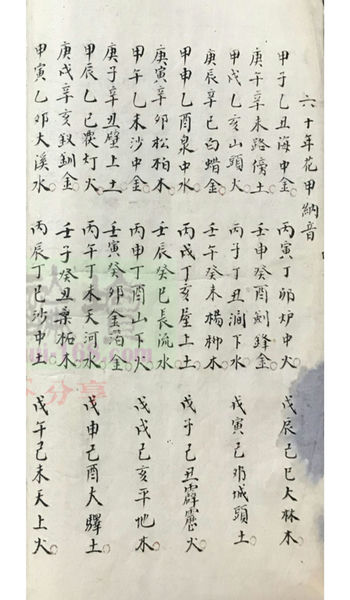 六十年花甲納音
甲子乙丑海中金 丙寅丁卯炉中火 戊辰己巳大林木
庚午辛未路傍土 壬申癸酉剑鋒金
甲戌乙亥山頭火 丙子丁丑澗下水 戊寅己卯城頭土
庚辰辛巳白蜡金 壬午癸未楊柳木
甲申乙酉泉中水 丙戌丁亥屋上土 戊子己丑霹靂火
庚寅辛卯松柏木 壬辰癸巳長流水
甲午乙未沙中金 丙申丁酉山下火 戊戌己亥平地木
庚子辛丑壁上土 壬寅癸卯金泊金
甲辰乙巳灯火 丙午丁未天河水 戊申己酉大驛土
庚戌辛亥钗釧金 壬子癸丑桑柘木
甲寅乙卯大溪水 丙辰丁巳沙中土 戊午己未天上火
分享